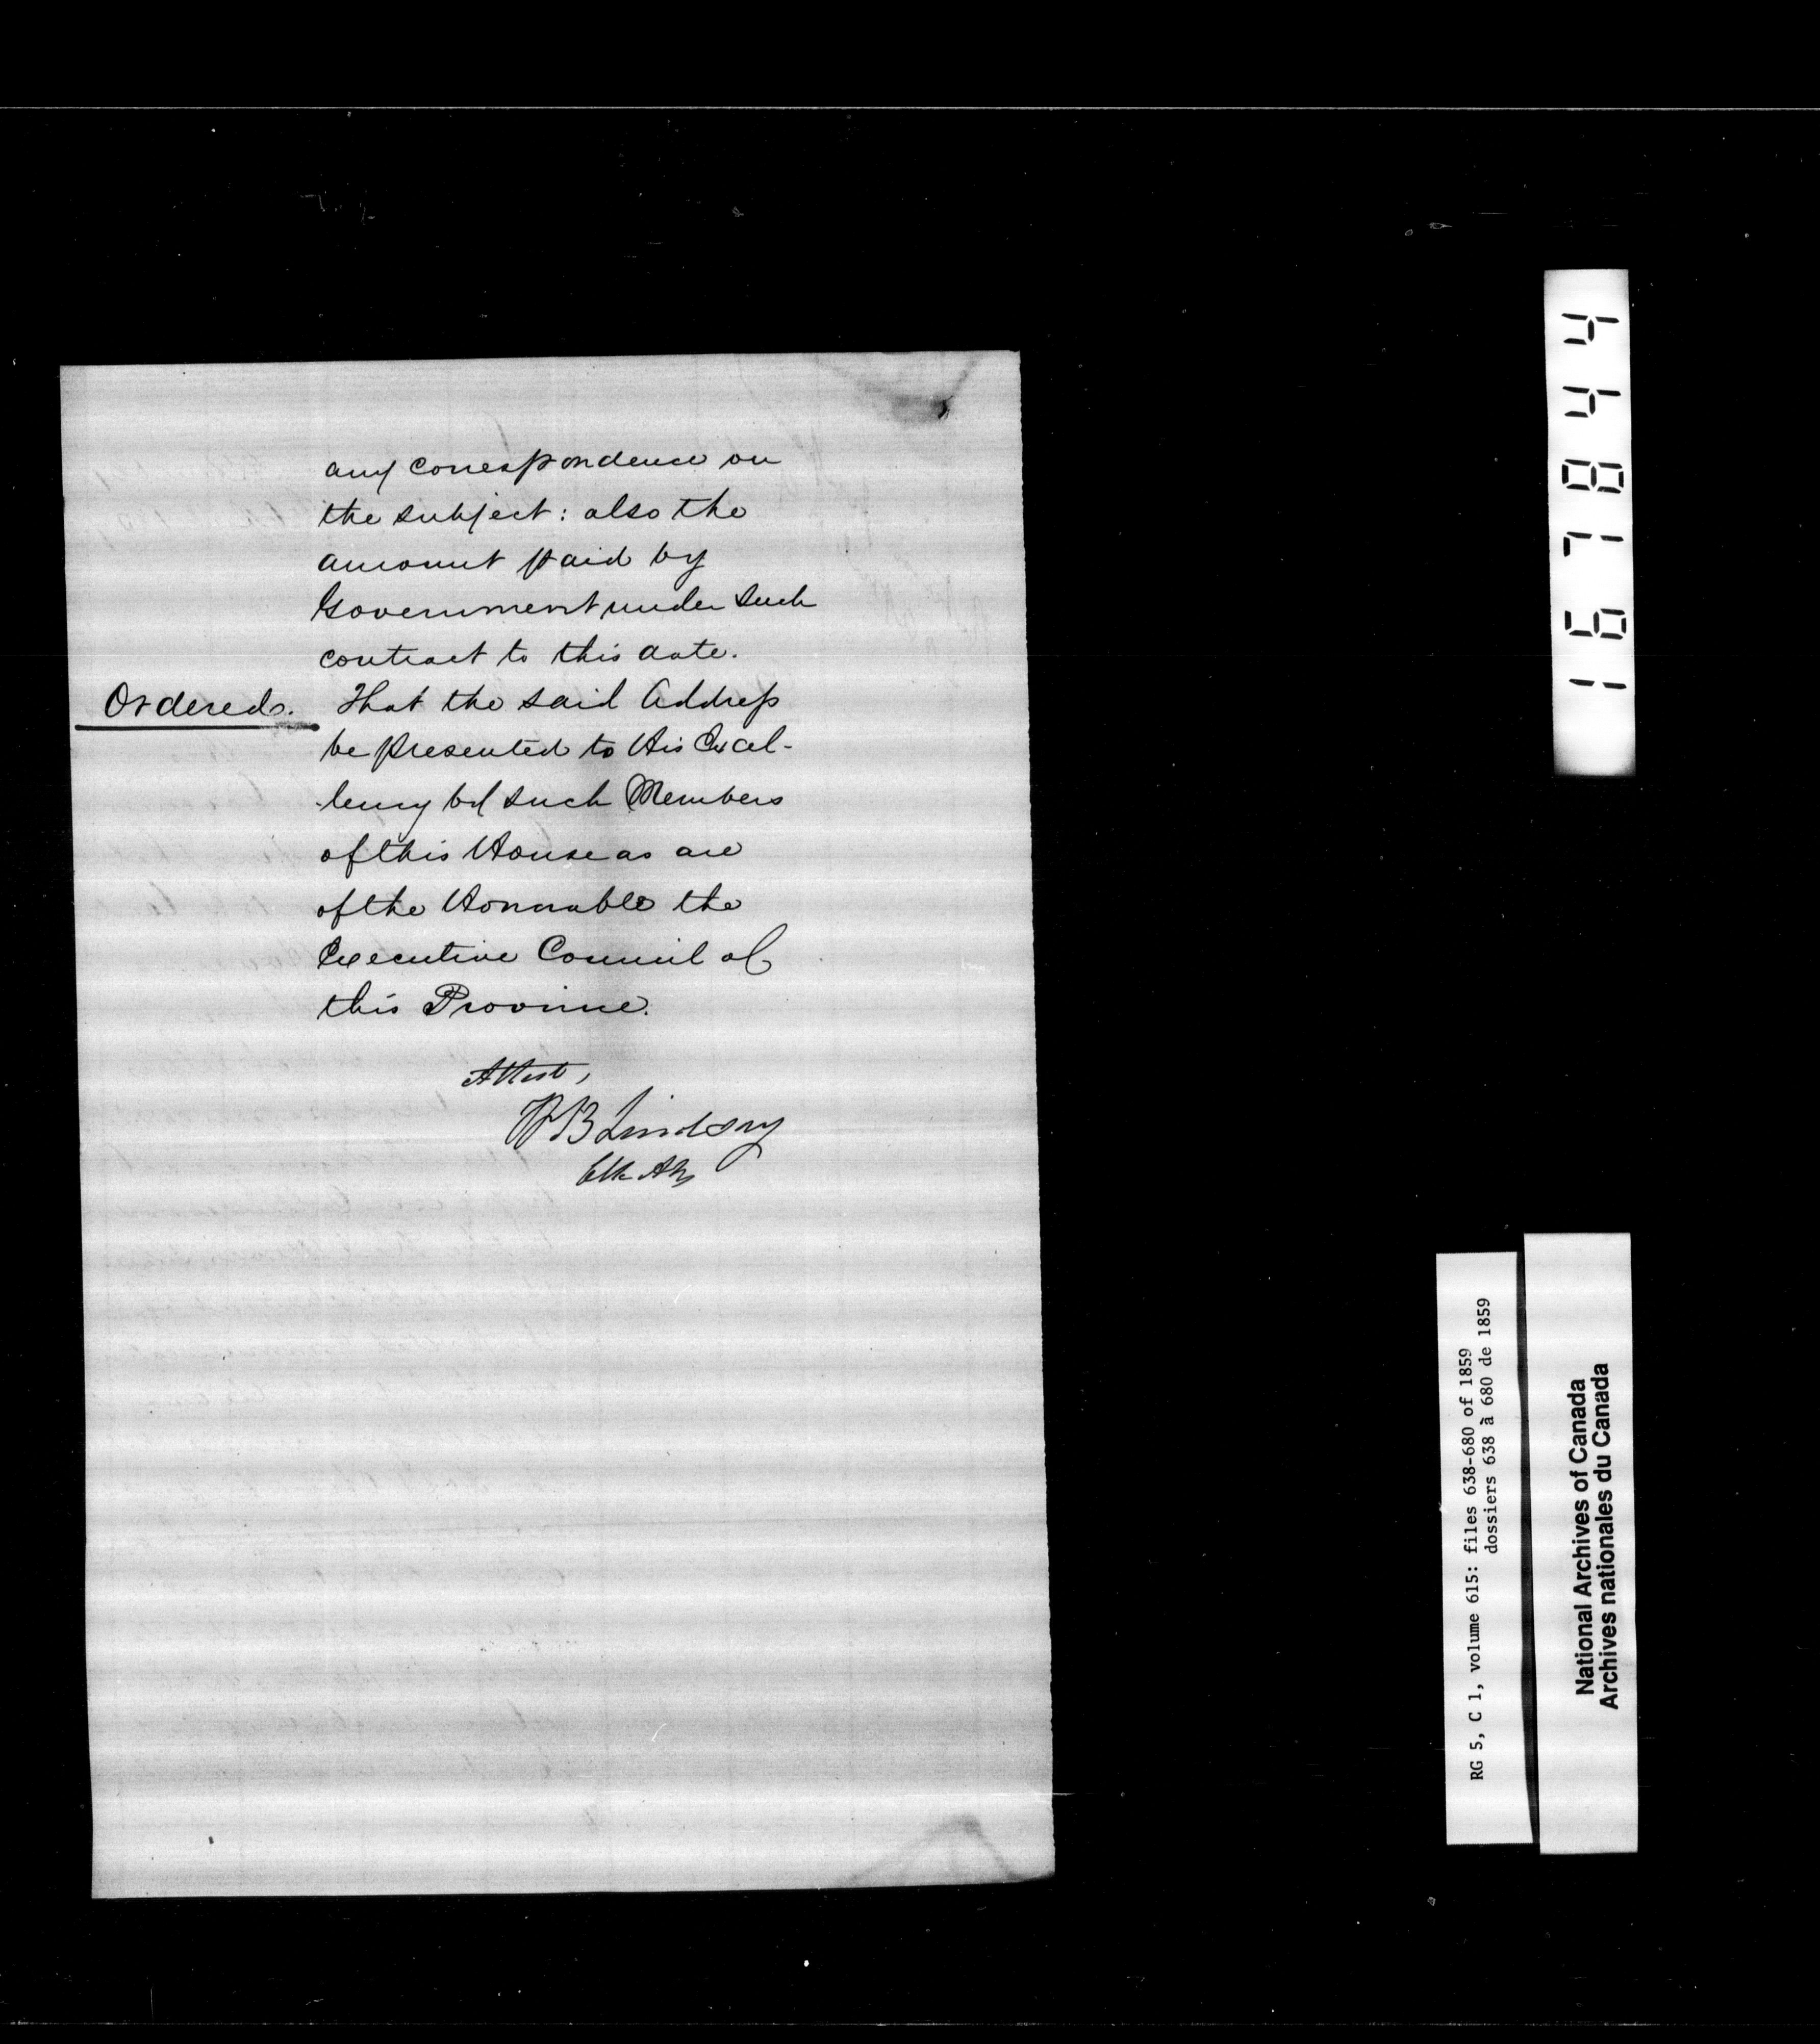 any correspondence on
the subject: also the
amount paid by
Government under such
contract to this date.
Ordered. That the said Address
be presented to His Excel-
-lency by such Members
of this House as are
of the Honorable the
Executive Council of
this Province.
Attest,
WB Lindsay
Clk Assy
167844
RG 5, C 1, volume 615: files 638-680 of 1859
dossiers 638 à 680 de 1859
National Archives of Canada
Archives nationales du Canada